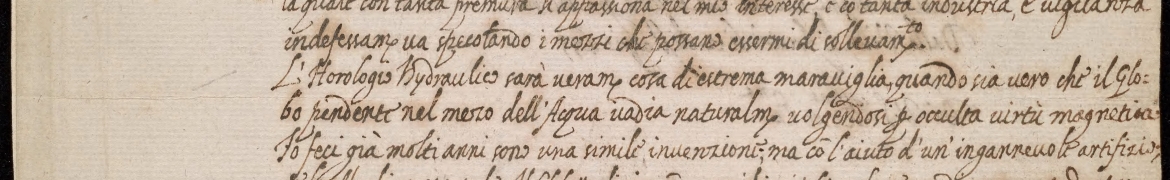 la quale con tanta premura s'appassiona nel mio interesse, e cō tanta industria, e vigilanza
indefessam. va specolando i mezzi che possano essermi di sollevam.to.
L'Horologio Hydraulico sarà veram. cosa di estrema maraviglia, quando sia vero che il Glo=
bo pendente nel mezo dell'Acqua vadia naturalm. volgendosi p occulta virtù magnetica.
Io feci già molti anni sono una simile invenzione; ma cō l'aiuto d'un'ingannevole artifizio;